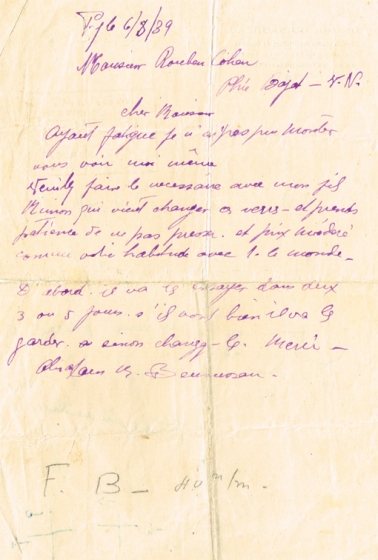 6/8/39
Monsieur Rouben Cohen
Phie - V. N.
cher Monsieur
Ayant fatigue je n'ai pas pu monter
vous voir moi même
Veuillez faire le necessaire avec mon fils
qui vient changer verres - et prends
patience de ne pas presser. et prix modéré
comme votre habitude avec t. le monde -
D'abord. il va les essayer dans deux
3 ou 5 jours. s'il vont bien il va les
garder. sinon changez-les. Merci -
F. B - 40 m/m.